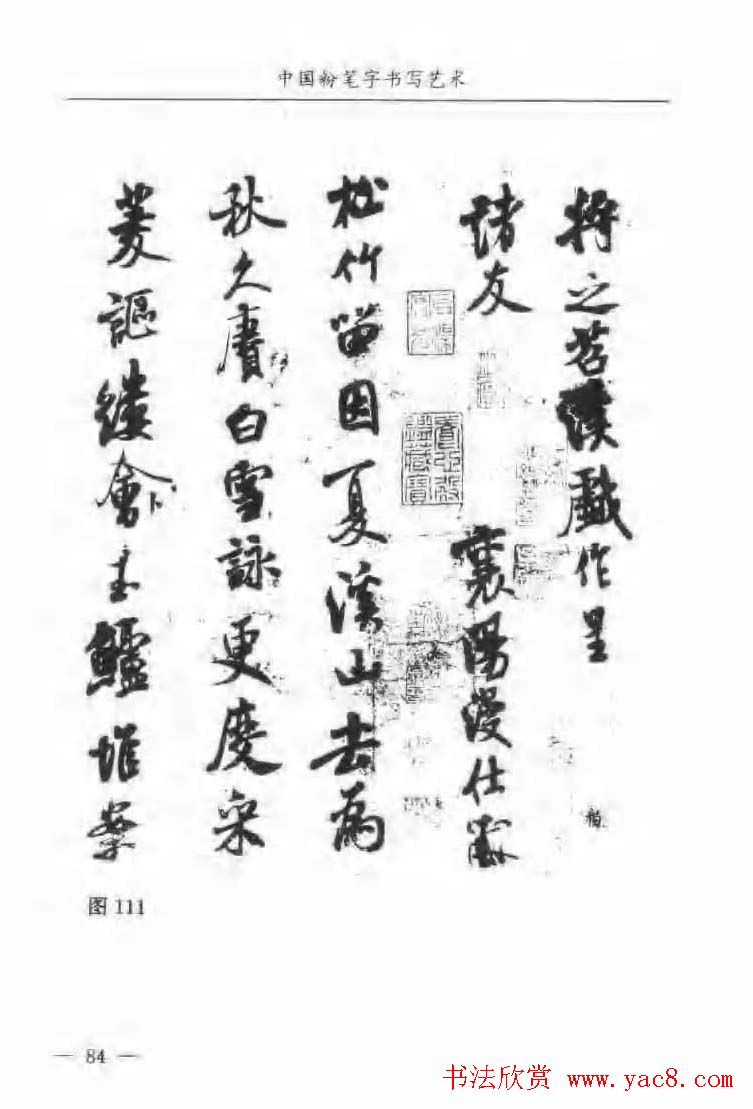 中国粉笔字书写艺术
將之苕溪戲作呈
諸友
襄陽漫仕黻
松竹留因夏溪山去為
秋久賡白雪詠更度采
菱謳縷會玉鱸堆案
图 111
— 84 —
书法欣赏 www.yac8.com